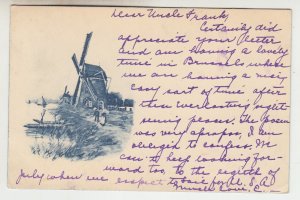 Dear Uncle Frank,
Certainly did
appreciate your letter
and am having a lovely
time in Brussels where
we are having a nice
easy sort of time after
this everlasting sight-
seeing process. The poem
was very apropos, I am
obliged to confess. We
can to keep looking for-
ward too, to the eighth of
July when we expect to for U.S.A